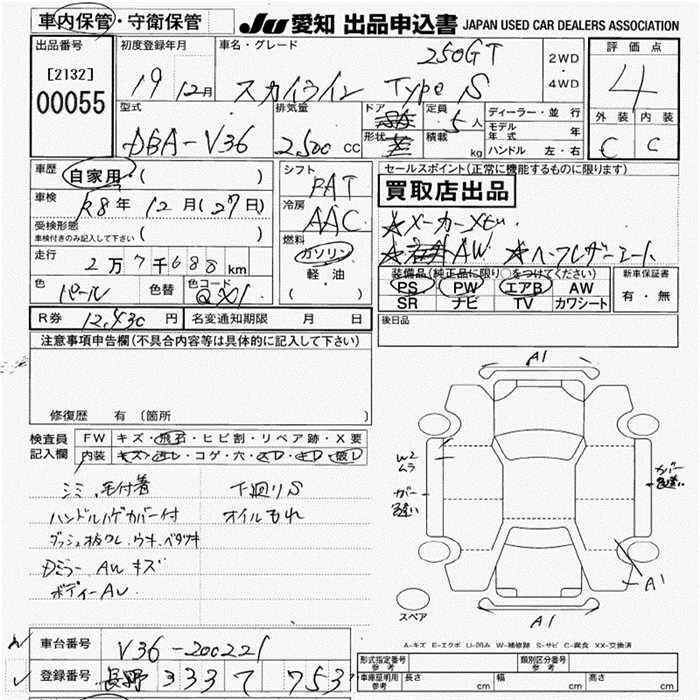 車内保管・守衛保管
JU 愛知 出品申込書 JAPAN USED CAR DEALERS ASSOCIATION
出品番号
[2132]
00055
初度登録年月
19 12月
車名・グレード
250GT
スカイライン Type S
2WD
・
4WD
評価点
4
外装 内装
C C
型式
DBA-V36
排気量
2,500 CC
ドア
形状
定員
5人
積載
kg
ディーラー・並行
モデル年式 年
ハンドル 左・右
車歴
自家用 ( )
車検
R8年 12月(27日)
受検形態
車検付きのみ記入して下さい ( )
走行
2万7千688km
色 パール 色替 色コード QX1
シフト
FAT
冷房
AAC
燃料
ガソリン
軽油
( )
セールスポイント(正常に機能するものに限ります)
買取店出品
装備品(純正品に限り○をつけてください)
PS PW エアB AW
SR ナビ TV カワシート
新車保証書
有・無
R券 12,430円 名変通知期限 月 日
後日品
注意事項申告欄(不具合内容等は具体的に記入して下さい)
修復歴 有 (箇所 )
検査員記入欄
FW キズ・飛石・ヒビ割・リペア跡・X要
内装 キズ・汚レ・コゲ・穴・スレ・キレ・破レ
シミ、毛付着 下廻りS
ハンドルハゲカバー付 オイルもれ
ダッシュ板クレ、ウキ、ベタツキ
Dミラー AU キズ
ボディーAU
A1
W2
ムラ
カバー
色違い
カバー
色違い
A1
A1
スペア
A-キズ E-エクボ U-凹み W-補修跡 S-サビ C-腐食 XX-交換済
車台番号 V36-200221
登録番号 長野 333 て 753
形式指定番号
参考
類別区分番号
参考
車庫証明用
参考
長さ cm 幅 cm 高さ cm